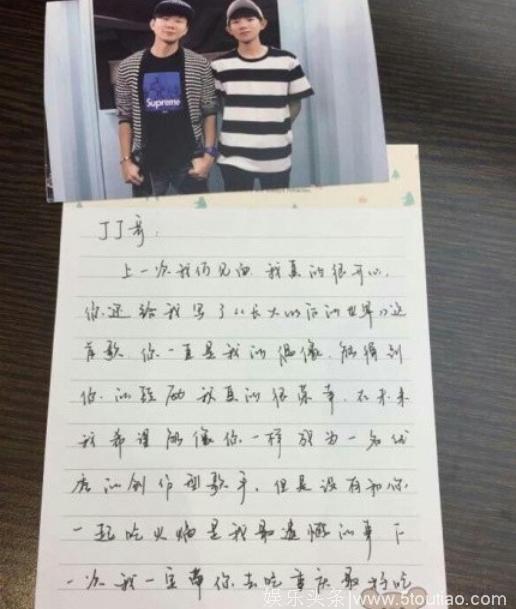 Supreme
JJ哥:
上一次我们见面 我真的很开心,
你还给我写了《长大以后的世界》这
首歌. 你一直是我的偶像, 能得到
你的鼓励 我真的很荣幸. 在未来
我希望能像你一样成为一名优
秀的创作型歌手. 但是没有和你
一起吃火锅是我最遗憾的事, 下
一次我一定带你去吃重庆最好吃
娱乐头条 www.5toutiao.com